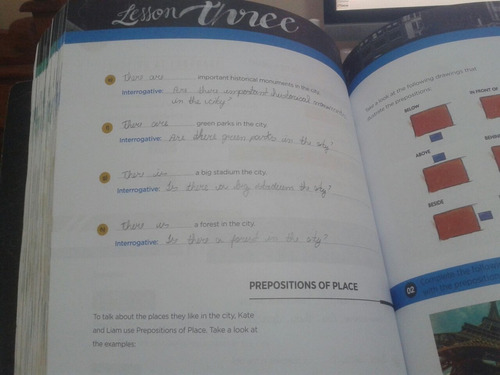 Lesson Three
there are important historical monuments in the city.
Interrogative: Are there important historical
in the city?
There are green parks in the city.
Interrogative: Are there green parks in the city?
There is a big stadium the city.
Interrogative: Is there
there is a forest in the city.
Interrogative: Is there a forest in the city?
PREPOSITIONS OF PLACE
To talk about the places they like in the city, Kate
and Liam use Prepositions of Place. Take a look at
the examples:
Take a look at the following drawings that
the prepositions.
BELOW
IN FRONT OF
ABOVE
BESIDE
02 Complete the follow
with the preposit